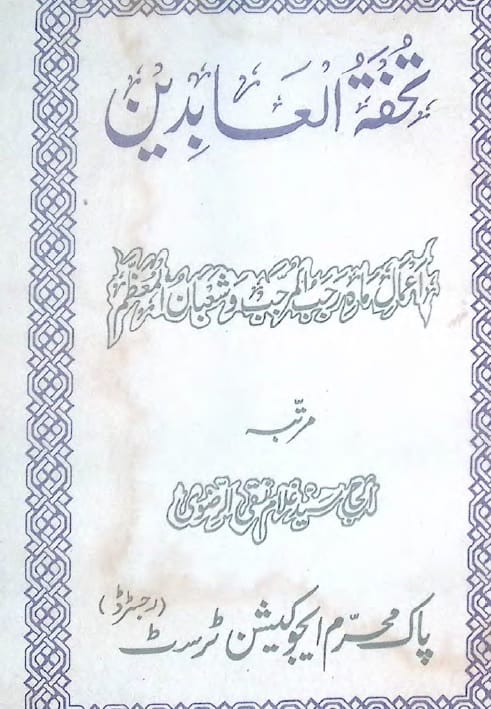 تُحفَۃُ العَابِدِین
اَعمَال مَاہِ رجَبُ المُرجَّب وَشَعبَانُ المُعظّم
مرتّبہ
الحاج سیّد غلام نقی الرضوی
پاک محرّم ایجوکیشن ٹرسٹ (رجسٹرڈ)